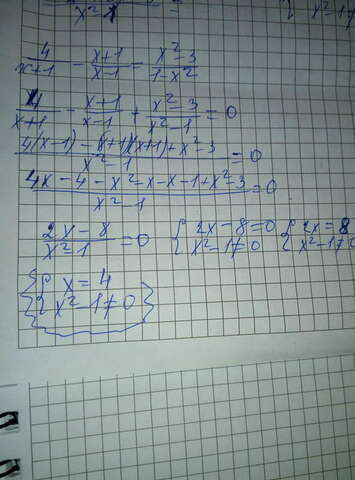 4/(x+1) - (x+1)/(x-1) = (x²-3)/(1-x²)
4/(x+1) - (x+1)/(x-1) + (x²-3)/(x²-1) = 0
(4(x-1) - (x+1)(x+1) + x²-3)/(x²-1) = 0
(4x - 4 - x² - x - x - 1 + x² - 3)/(x²-1) = 0
(2x-8)/(x²-1) = 0 { 2x-8=0 { 2x=8
x²-1≠0 x²-1≠0
{ x=4
x²-1≠0